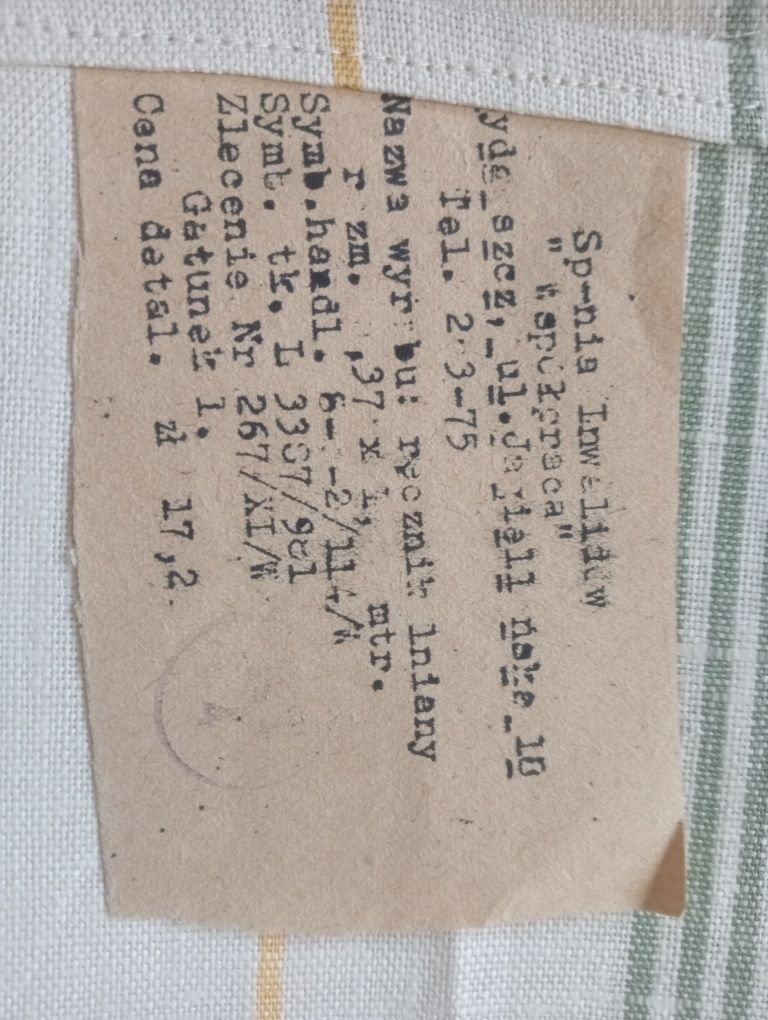 Sp-nia Inwalidów
"Współpraca"
ydg szcz, ul. 10
Tel. 2 3-75
Nazwa wyr bu: ręcznik lniany
r zm. ,37 x 1, mtr.
Symb.handl.
Symb. tk. L
Zlecenie Nr 267/XI/W
Gatunek 1.
Cena detal. zł 17,2